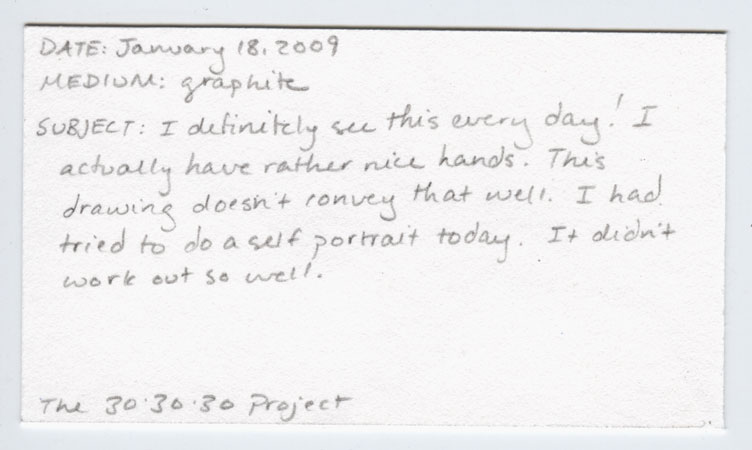 DATE: January 18, 2009
MEDIUM: graphite
SUBJECT: I definitely see this every day! I
actually have rather nice hands. This
drawing doesn't convey that well. I had
tried to do a self portrait today. It didn't
work out so well.
The 30·30·30 Project